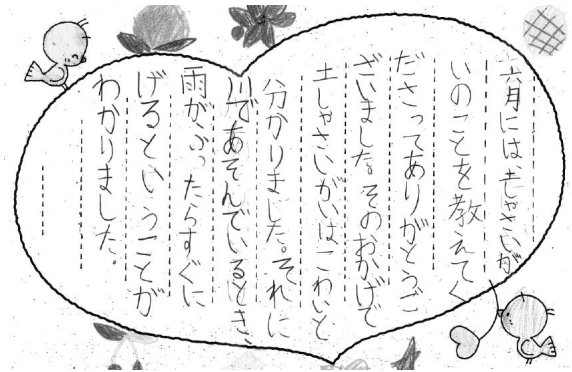 六月には、土しゃさいが
いのことを教えてく
ださってありがとうご
ざいました。そのおかげで
土しゃさいがいはこわいと
分かりました。それに
川であそんでいるとき、
雨がふったらすぐに
げるということが
わかりました。